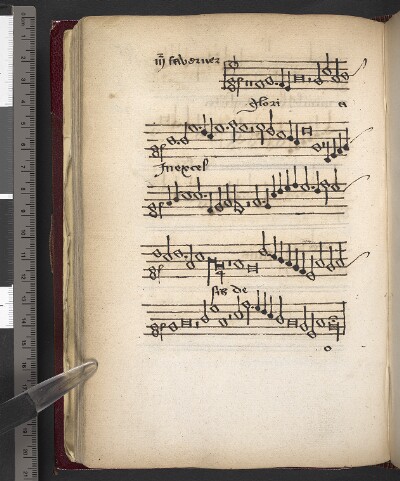 iij taverner
glori a
In excel
sis de
o